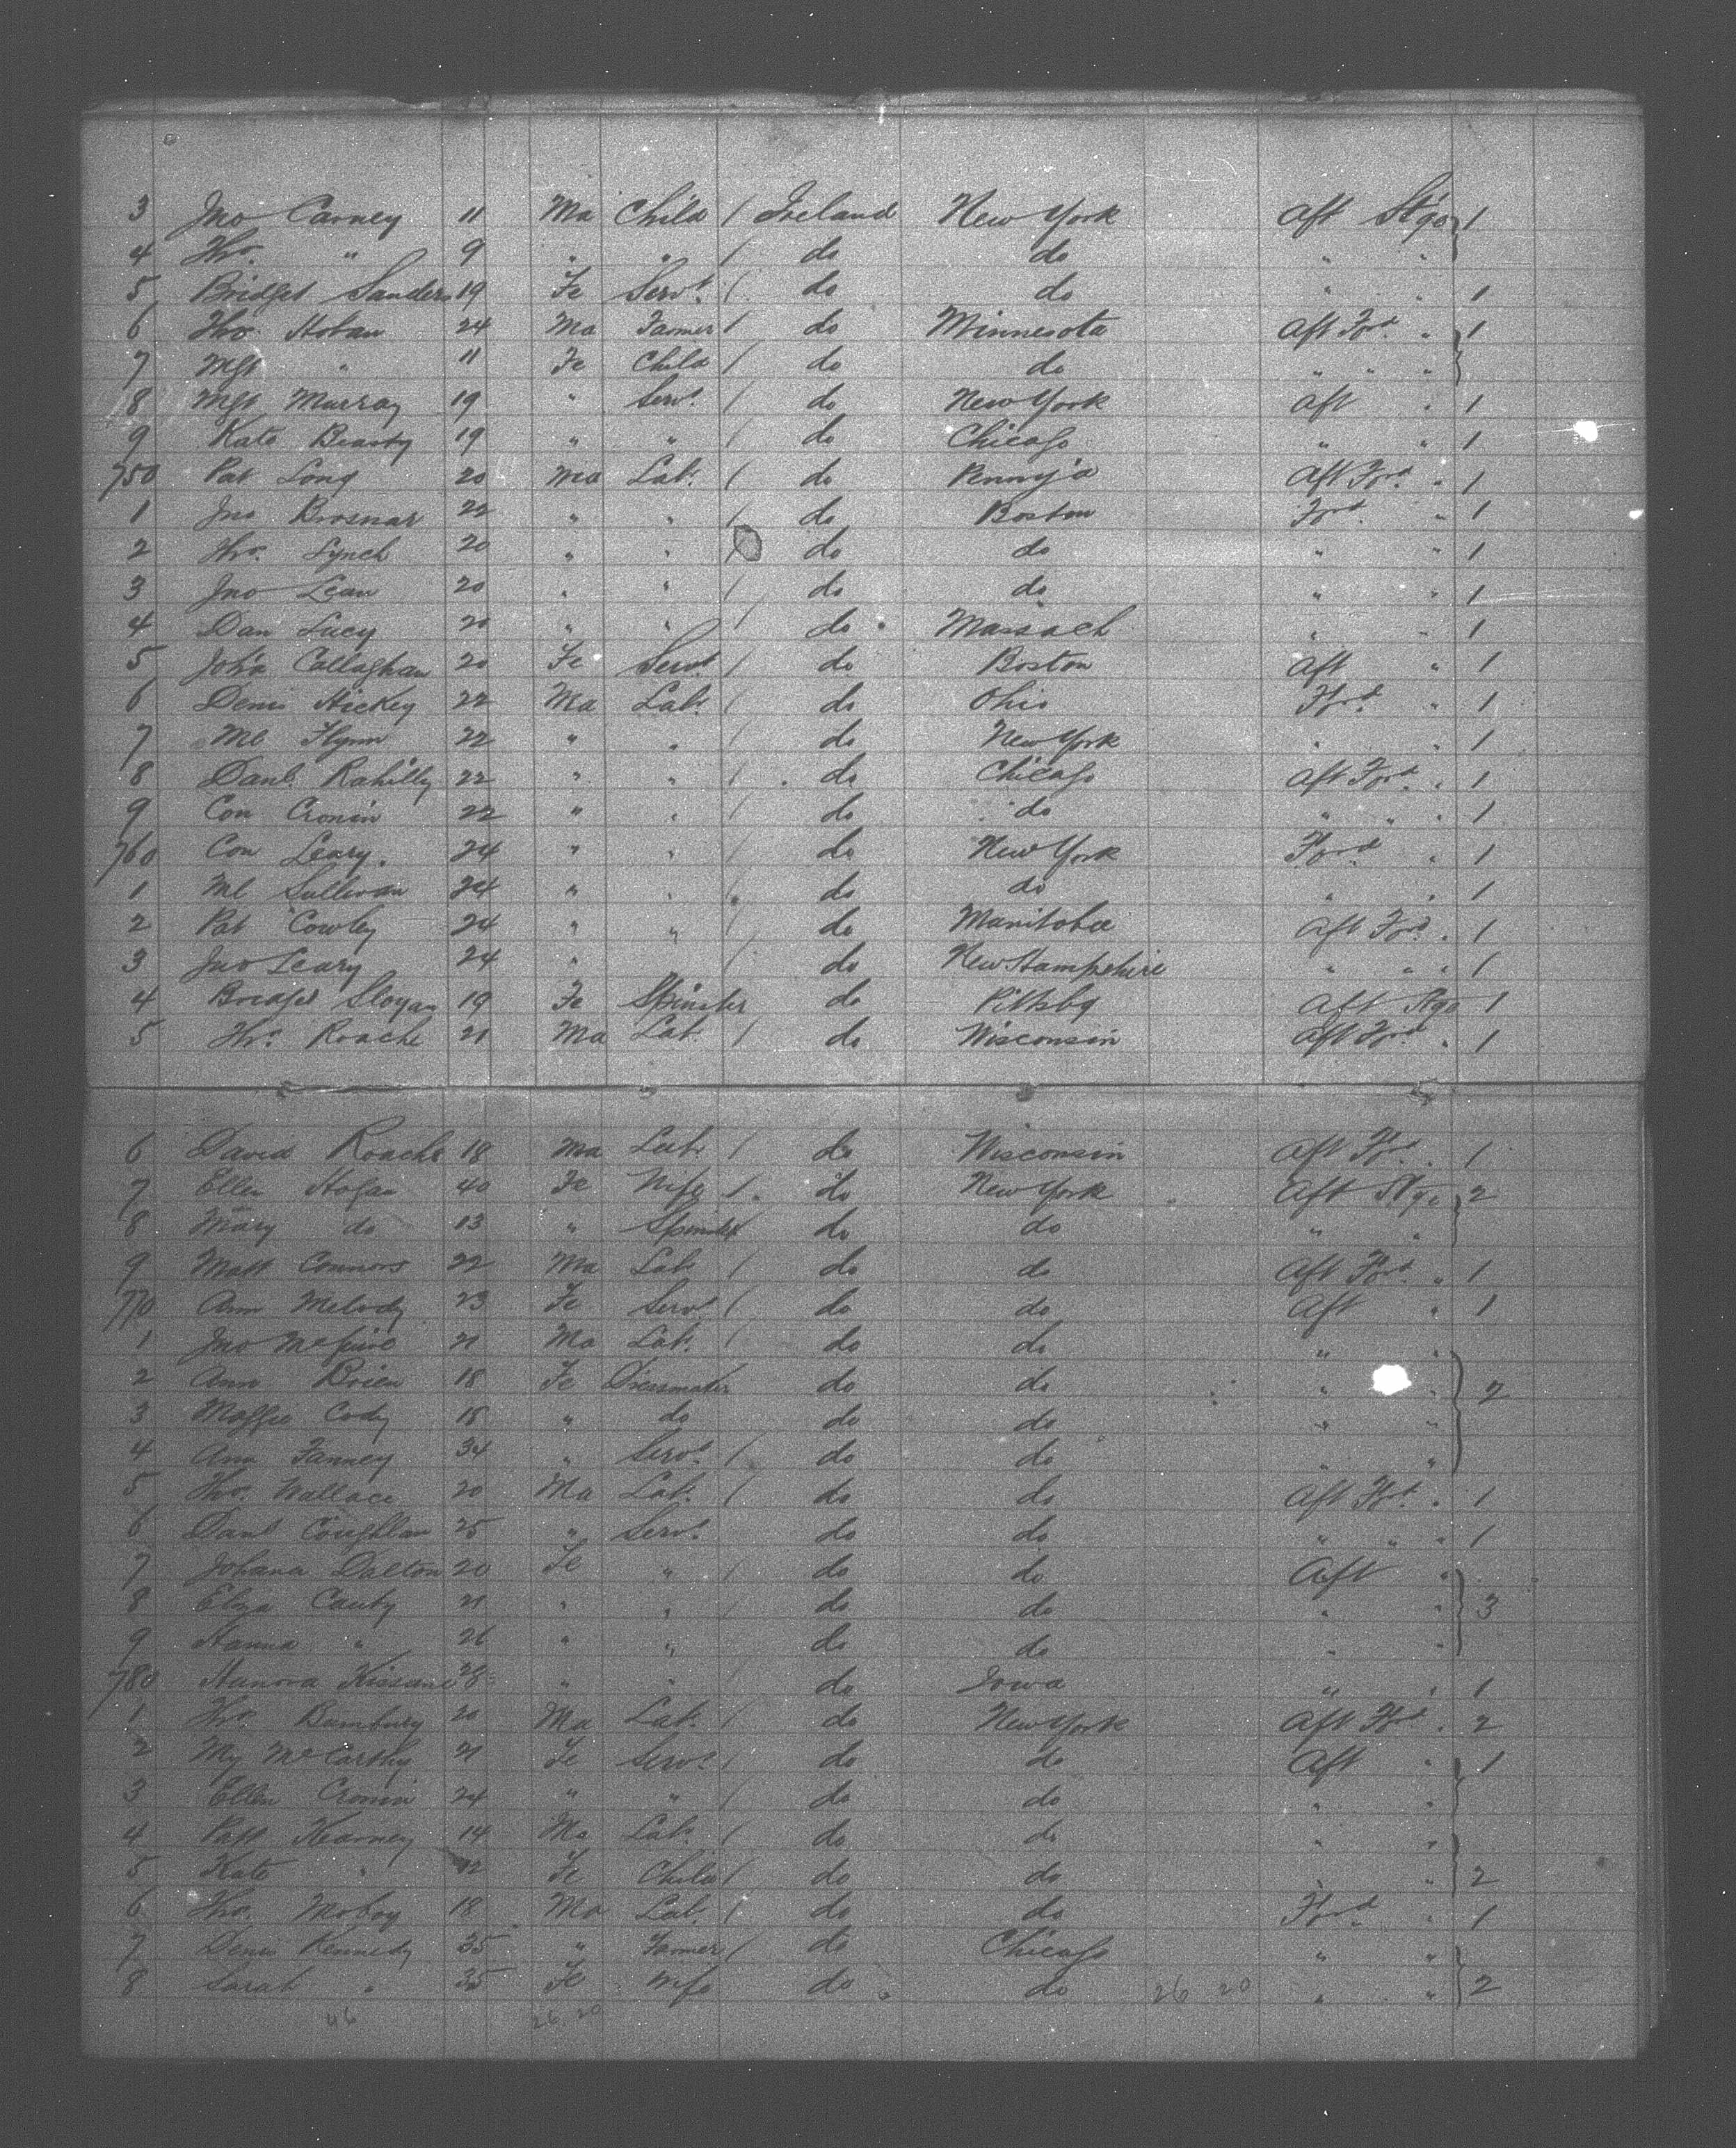 3 Jno Carney 11 Ma Child / Ireland New York Aft Stge 1
4 Thos. " 9 " " / do do " "
5 Bridget Sanders 19 Fe Servt. / do do " " 1
6 Thos Hoban 24 Ma Farmer / do Minnesota Aft Ford. " 1
7 Mgt " 11 Fe Child / do do " " "
8 Mgt Murray 19 " Servt. / do New York Aft " 1
9 Kate Beasty 19 " " / do Chicago " " 1
750 Pat Long 20 Ma Labr. / do Pennj'a Aft Ford. " 1
1 Jno Brosnar 22 " " / do Boston Ford. " 1
2 Thos. Lynch 20 " " / do do " " 1
3 Jno Lean 20 " " / do do " " 1
4 Dan Lucy 20 " " / do Massach " " 1
5 Joh'a Callaghan 20 Fe Servt / do Boston Aft " 1
6 Denis Hickey 22 Ma Labr. / do Ohio Ford. " 1
7 Ml Flynn 22 " " / do New York " " 1
8 Danl. Rahilly 22 " " / do Chicago Aft Ford. " 1
9 Con Cronin 22 " " / do do " " " 1
760 Con Leary. 24 " " / do New York Ford. " 1
1 Ml Sullivan 24 " " / do do " " 1
2 Pat Cowley 24 " " / do Manitoba Aft Ford. " 1
3 Jno Leary 24 " / do New Hampshire " " " 1
4 Bridget Sloyan 19 Fe Spinster do Pittsbg Aft Stge 1
5 Thos. Roache 21 Ma Labr. / do Wisconsin Aft Ford. " 1
6 David Roache 18 Ma Labr. / do Wisconsin Aft Ford. 1
7 Ellen Hogan 40 Fe Wife / do New York Aft Stge 2
8 Mary do 13 " Spinster do do " "
9 Matt Connors 22 Ma Labr. / do do Aft Ford. " 1
770 Ann Melody 23 Fe Servt. / do do Aft " 1
1 Jno 21 Ma Labr. / do do " "
2 Ann Brien 18 Fe Dressmaker do do " " 2
3 Maggie Cody 18 " do do do " "
4 Ann Fanney 34 " Servt. / do do " "
5 Thos. Wallace 20 Ma Labr. / do do Aft Ford. " 1
6 Danl Coughlan 25 " Servt. do do " " " 1
7 Johana Dalton 20 Fe " / do do Aft "
8 Eliza 21 " " / do do " " 3
9 Hanna " 26 " " do do " "
780 Hanora Kissane 28 " " / do Iowa " " 1
1 Thos. Bumbury 20 Ma Labr. / do New York Aft Ford. " 2
2 My McCarthy 21 Fe Servt. / do do Aft " 1
3 Ellen Cronin 24 " " / do do " "
4 Patt Kearney 14 Ma Labr. / do do " "
5 Kate " 12 Fe Child / do do " " 2
6 Thos. 18 Ma Labr. / do do Ford. " 1
7 Denis Kennedy 35 " Farmer / do Chicago " "
8 Sarah " 35 Fe Wife do do 26 20 " " 2
46 26 20